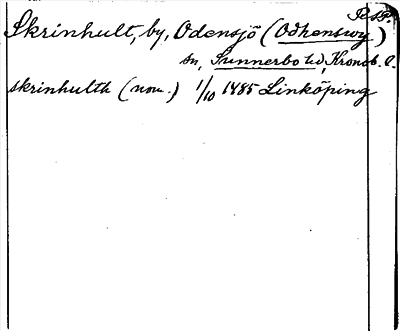 Skrinhult, by, Odensjö (Odhensiøy)
sn, Sunnerbo hd, Kronob. l.
skrinhulth (nom.) 1/10 1485 Linköping